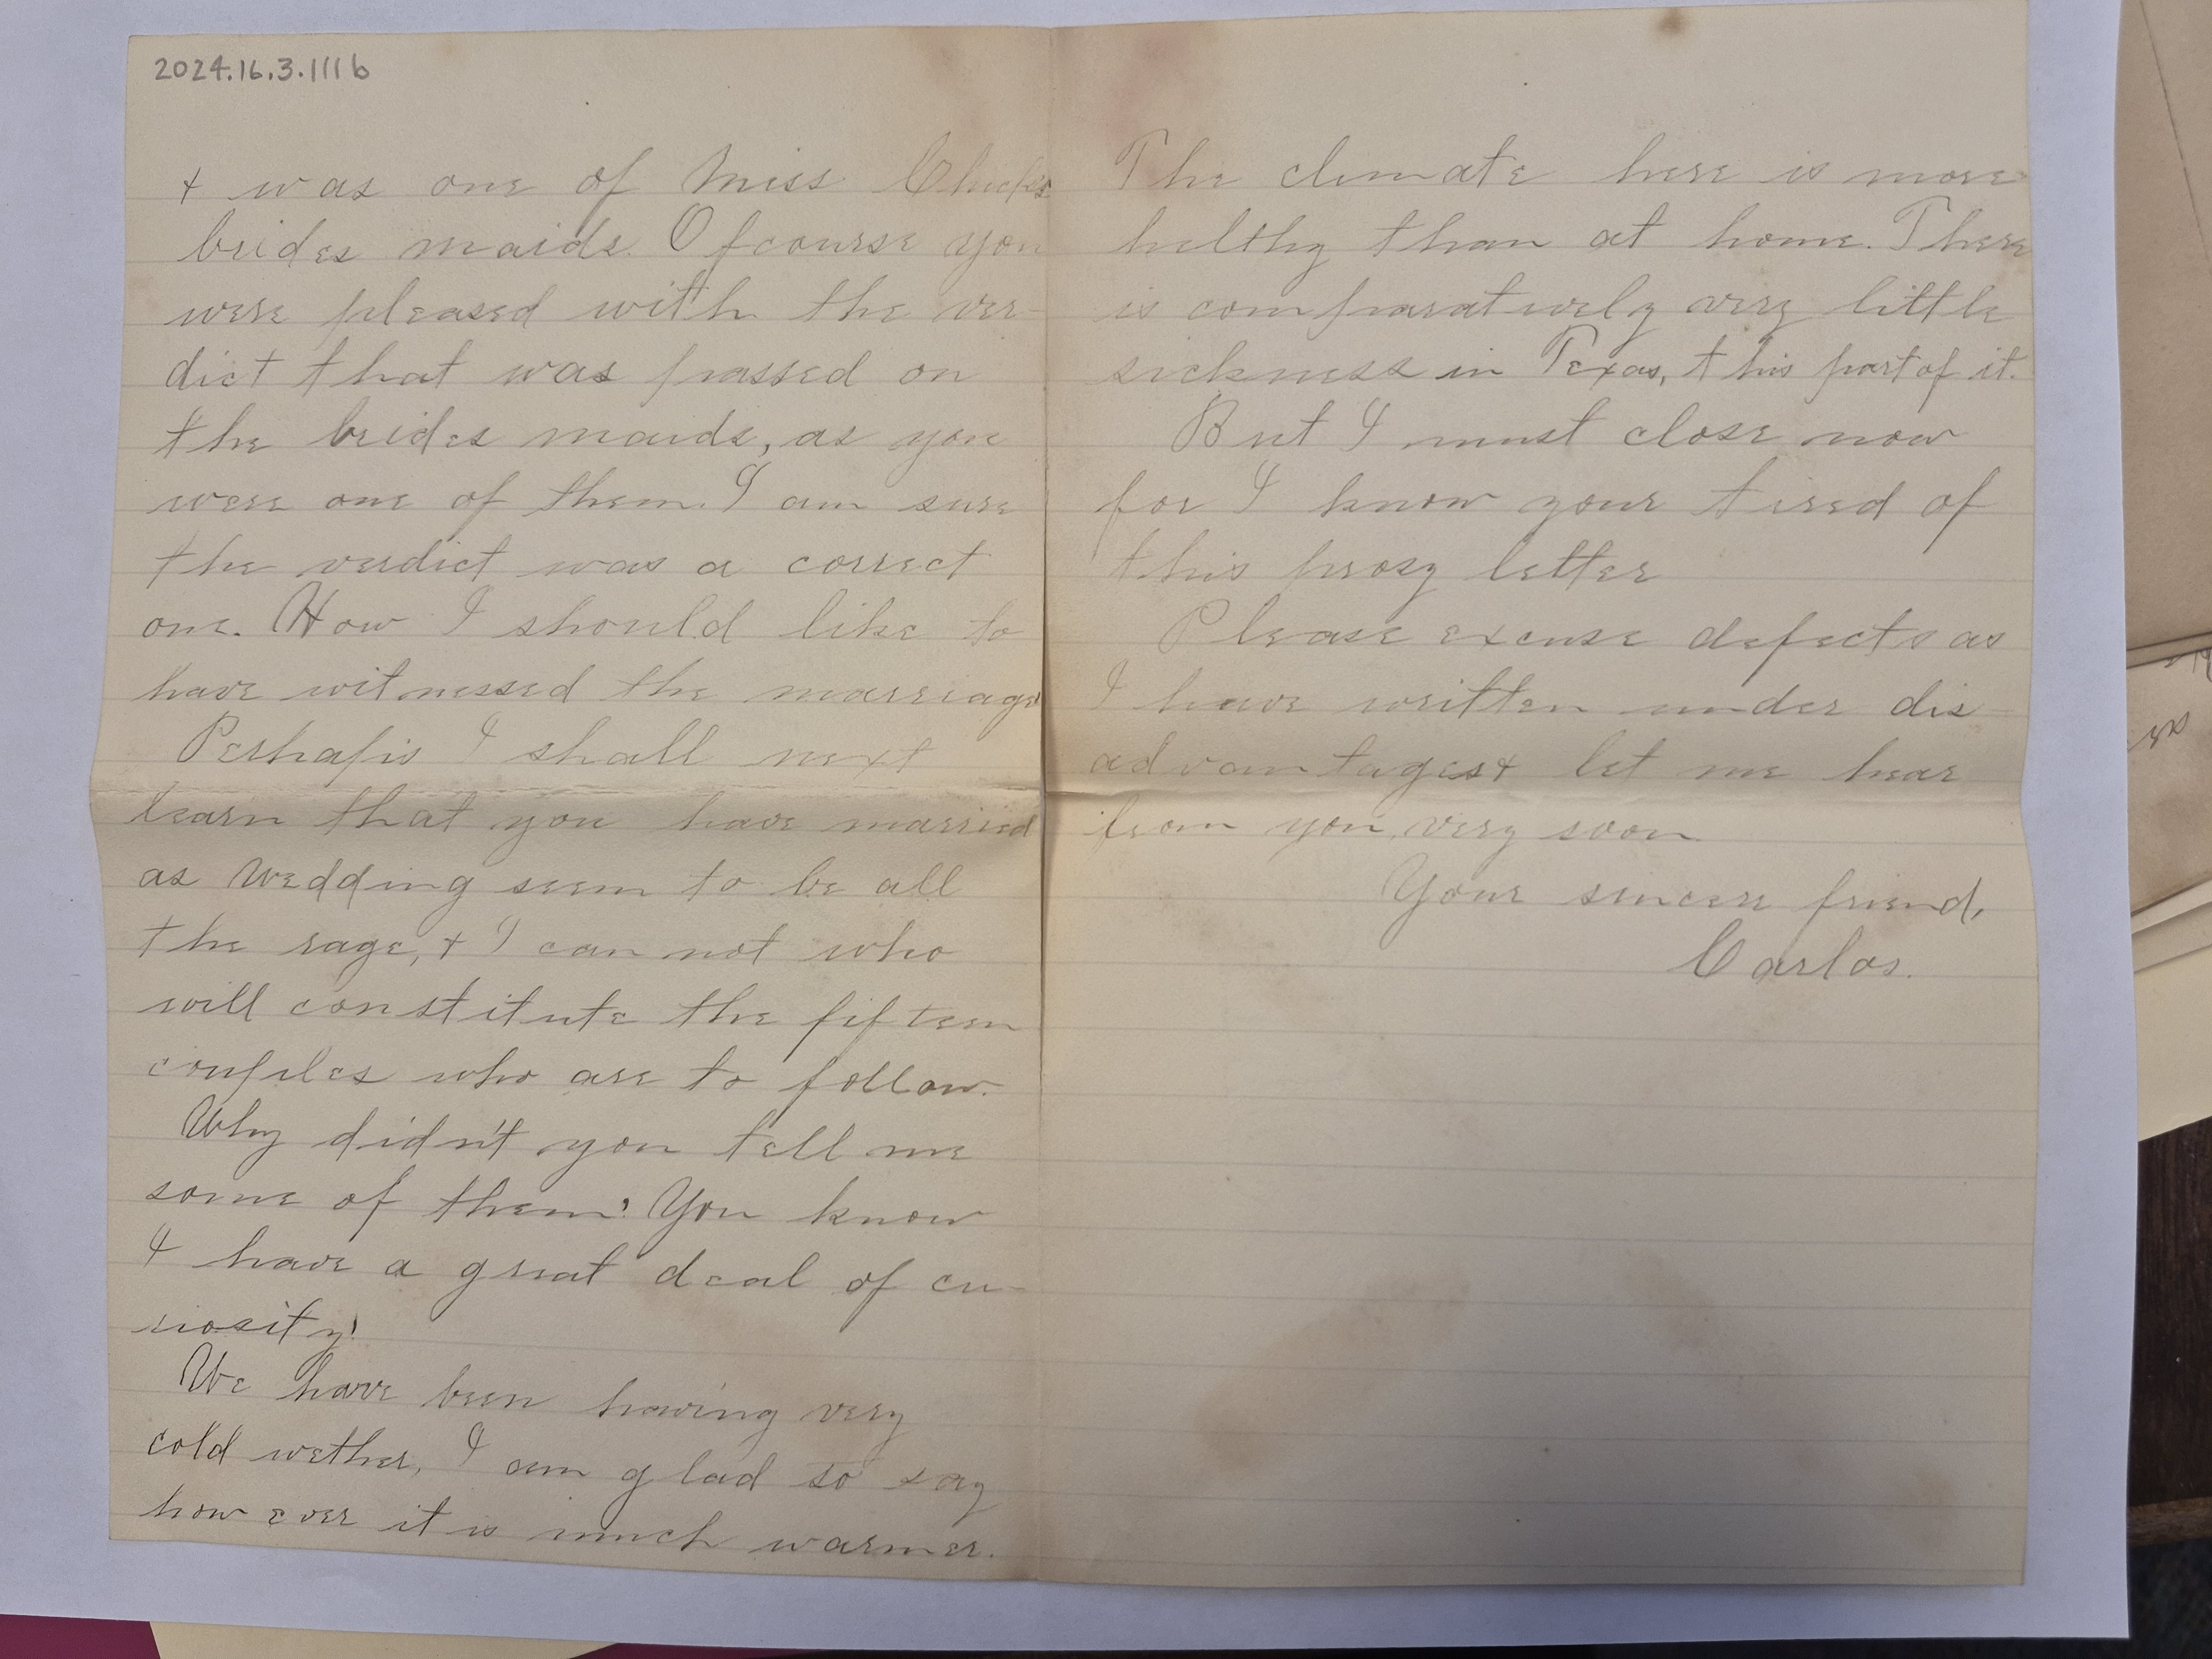 2024.16.3.111b
+ was one of Miss
brides maids. Ofcourse you
were pleased with the ver-
dict that was passed on
the brides maids, as you
were one of them. I am sure
the verdict was a correct
one. How I should like to
have witnessed the marriage!
Perhaps I shall next
learn that you have married
as wedding seem to be all
the rage, + I can not who
will constitute the fifteen
couples who are to follow.
Why didn't you tell me
some of them? You know
I have a great deal of cu-
riosity!
We have been having very
cold wether, I am glad so say
how ever it is much warmer.
The climate here is more
helthy than at home. There
is comparatively very little
sickness in Texas, this part of it.
But I must close now
for I know your tired of
this prosy letter
Please excuse defects as
I have written under dis
advantages + let me hear
from you, very soon
Your sincere friend,
Carlos.